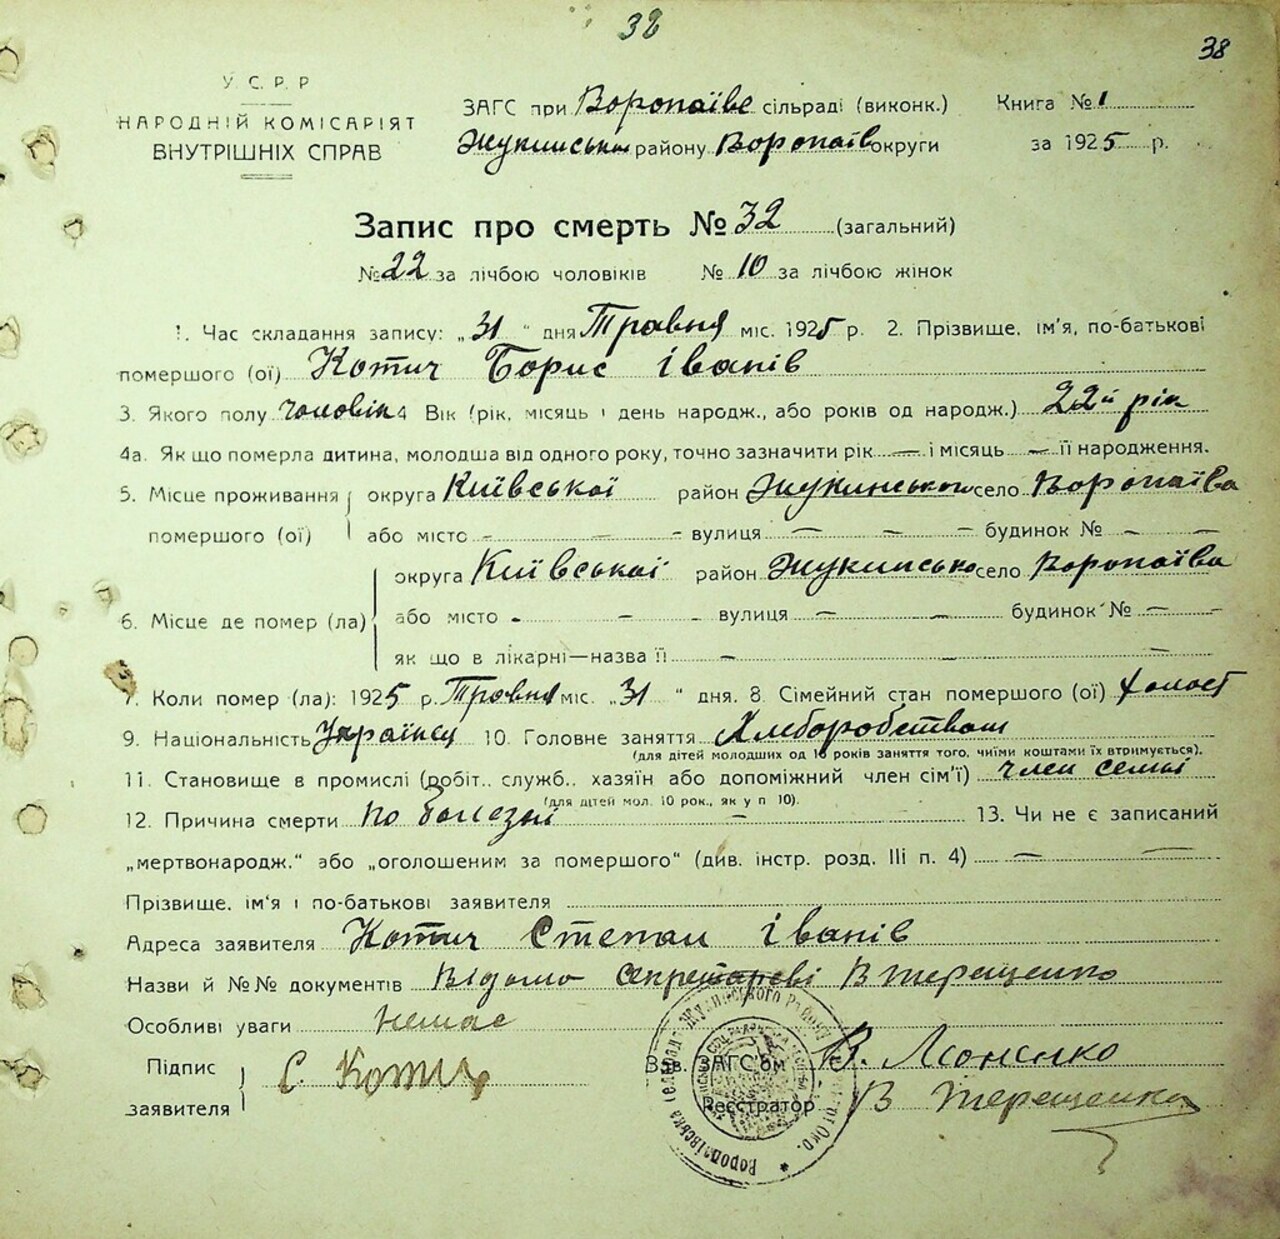 32
38
У.С.Р.Р
НАРОДНІЙ КОМІСАРІЯТ
ВНУТРІШНІХ СПРАВ
ЗАГС при Воропаївс сільраді (виконк.) Книга № 1
Жукинськи району Воропаїв округи за 1925 р.
Запис про смерть № 32 (загальний)
№ 22 за лічбою чоловіків № 10 за лічбою жінок
1. Час складання запису: „31“ дня Травня міс. 1925 р. 2. Прізвище, ім'я, по-батькові
помершого (ої) Котич Борис Іванів
3. Якого полу чоловік 4 Вік (рік, місяць і день народж., або років од народж.) 22й рік
4а. Як що померла дитина, молодша від одного року, точно зазначити рік — і місяць — її народження.
5. Місце проживання помершого (ої) округа Київської район Жукинського село Воропаїва
або місто - — - вулиця — — — будинок № — —
6. Місце де помер (ла) округа Київської район Жукинсько село Воропаїва
або місто - - - вулиця — — будинок № — —
як що в лікарні—назва її — — —
7. Коли помер (ла): 1925 р. Травня міс. „31“ дня. 8. Сімейний стан помершого (ої) холост
9. Національність Українец 10. Головне заняття Хлиборобством
(для дітей молодших од 16 років заняття того, чиїми коштами їх втримується).
11. Становище в промислі (робіт., служб., хазяїн або допоміжний член сім'ї) член семьі
(для дітей мол. 10 рок., як у п 10).
12. Причина смерти по болезні — 13. Чи не є записаний
„мертвонародж.“ або „оголошеним за помершого“ (див. інстр. розд. III п. 4) — —
Прізвище, ім'я і по-батькові заявителя
Адреса заявителя Котич Степан Іванів
Назви й №№ документів Відомо секретареві В Терещенко
Особливі уваги немає
Підпис заявителя С. Котич
Зав. ЗАГС'ом В.
Реєстратор В Терещенко